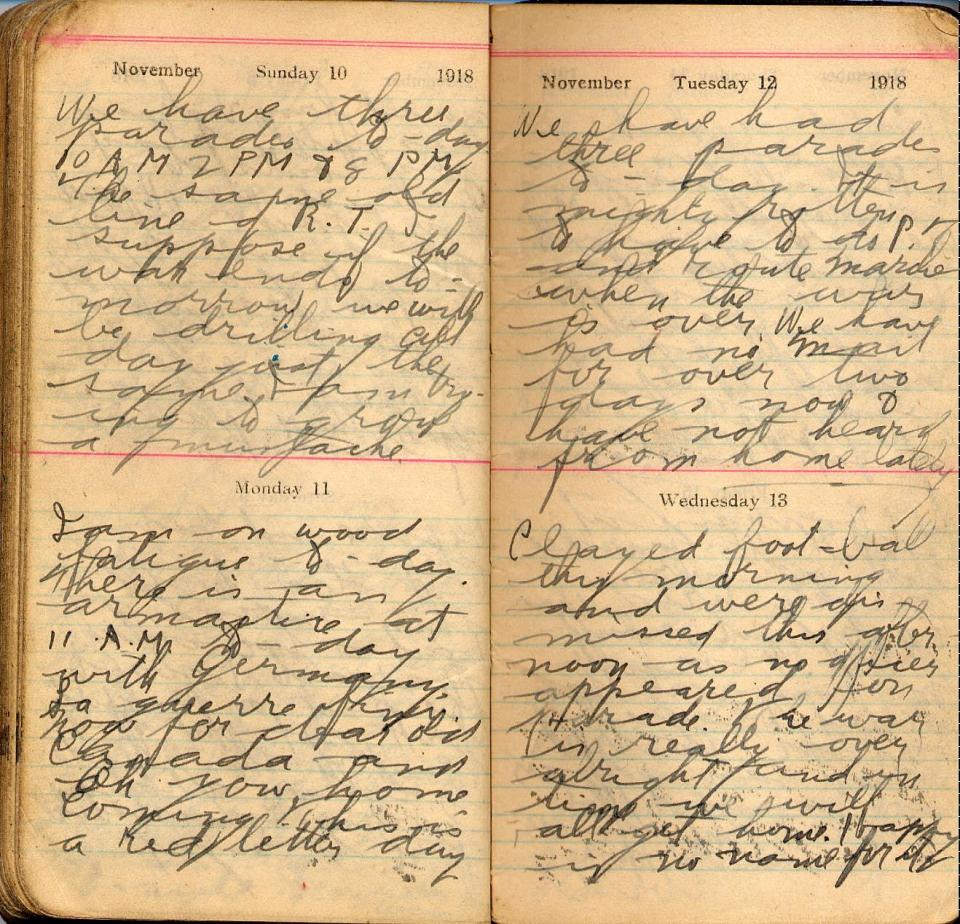 November Sunday 10 1918
We have three
parades to-day
10 A M 2 PM & 8 PM
The same old
line of R. T. I
suppose if the
war ends to-
morrow we will
be drilling all
day just the
same. I am try-
ing to grow
a mustache.
Monday 11
I am on wood
fatigue to-day.
There is an
armastire at
11 A.M to-day
with Germany.
La guerre fini
now for dear old
Canada and
Oh you home
coming, this is
a red letter day
November Tuesday 12 1918
We have had
three parades
to-day. It is
mighty rotten
to have to do P.
and route marche
when the war
is over. We have
had no mail
for over two
days now &
have not heard
from home lately
Wednesday 13
Played foot-ball
this morning
and were dis
missed this after
noon as no officer
appeared for
parade. The war
is really over
alright and in
time we will
all get home. Happy
is no name for it